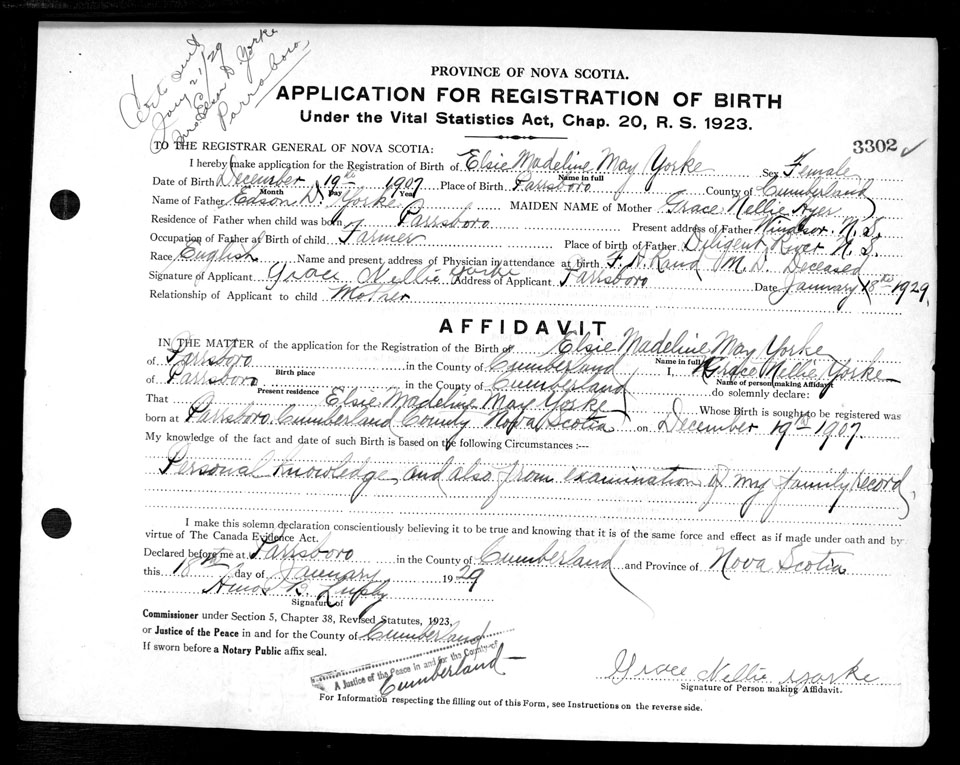 Cert sent
Jany 21/29
Mrs Edson D Yorke
Parrsboro
PROVINCE OF NOVA SCOTIA.
APPLICATION FOR REGISTRATION OF BIRTH
Under the Vital Statistics Act, Chap. 20, R. S. 1923.
3302 ✓
TO THE REGISTRAR GENERAL OF NOVA SCOTIA:
I hereby make application for the Registration of Birth of Elsie Madeline May Yorke Sex Female
Name in full
Date of Birth December 19th 1907 Place of Birth Parrsboro County of Cumberland
Month Day Year
Name of Father Edson D. Yorke MAIDEN NAME of Mother Grace Nellie Ayer
Residence of Father when child was born Parrsboro Present address of Father Windsor. N.S.
Occupation of Father at Birth of child Farmer Place of birth of Father Diligent River N.S.
Race English Name and present address of Physician in attendance at birth F. A. Rand M.D. Deceased
Signature of Applicant Grace Nellie Yorke Address of Applicant Parrsboro Date January 18th 1929.
Relationship of Applicant to child Mother
AFFIDAVIT
IN THE MATTER of the application for the Registration of the Birth of Elsie Madeline May Yorke
Name in full
of Parrsboro in the County of Cumberland I, Grace Nellie Yorke
Birth place Name of person making Affidavit
of Parrsboro in the County of Cumberland do solemnly declare:
Present residence
That Elsie Madeline May Yorke Whose Birth is sought to be registered was
born at Parrsboro Cumberland County Nova Scotia on December 19th 1907.
My knowledge of the fact and date of such Birth is based on the following Circumstances:—
Personal knowledge and also from examination of my family record
I make this solemn declaration conscientiously believing it to be true and knowing that it is of the same force and effect as if made under oath and by
virtue of The Canada Evidence Act.
Declared before me at Parrsboro in the County of Cumberland and Province of Nova Scotia
this 18th day of January 1929
Amos B.
Signature of
Commissioner under Section 5, Chapter 38, Revised Statutes, 1923,
or Justice of the Peace in and for the County of Cumberland
If sworn before a Notary Public affix seal.
A Justice of the Peace in and for the County of
Cumberland
Grace Nellie Yorke
Signature of Person making Affidavit.
For Information respecting the filling out of this Form, see Instructions on the reverse side.